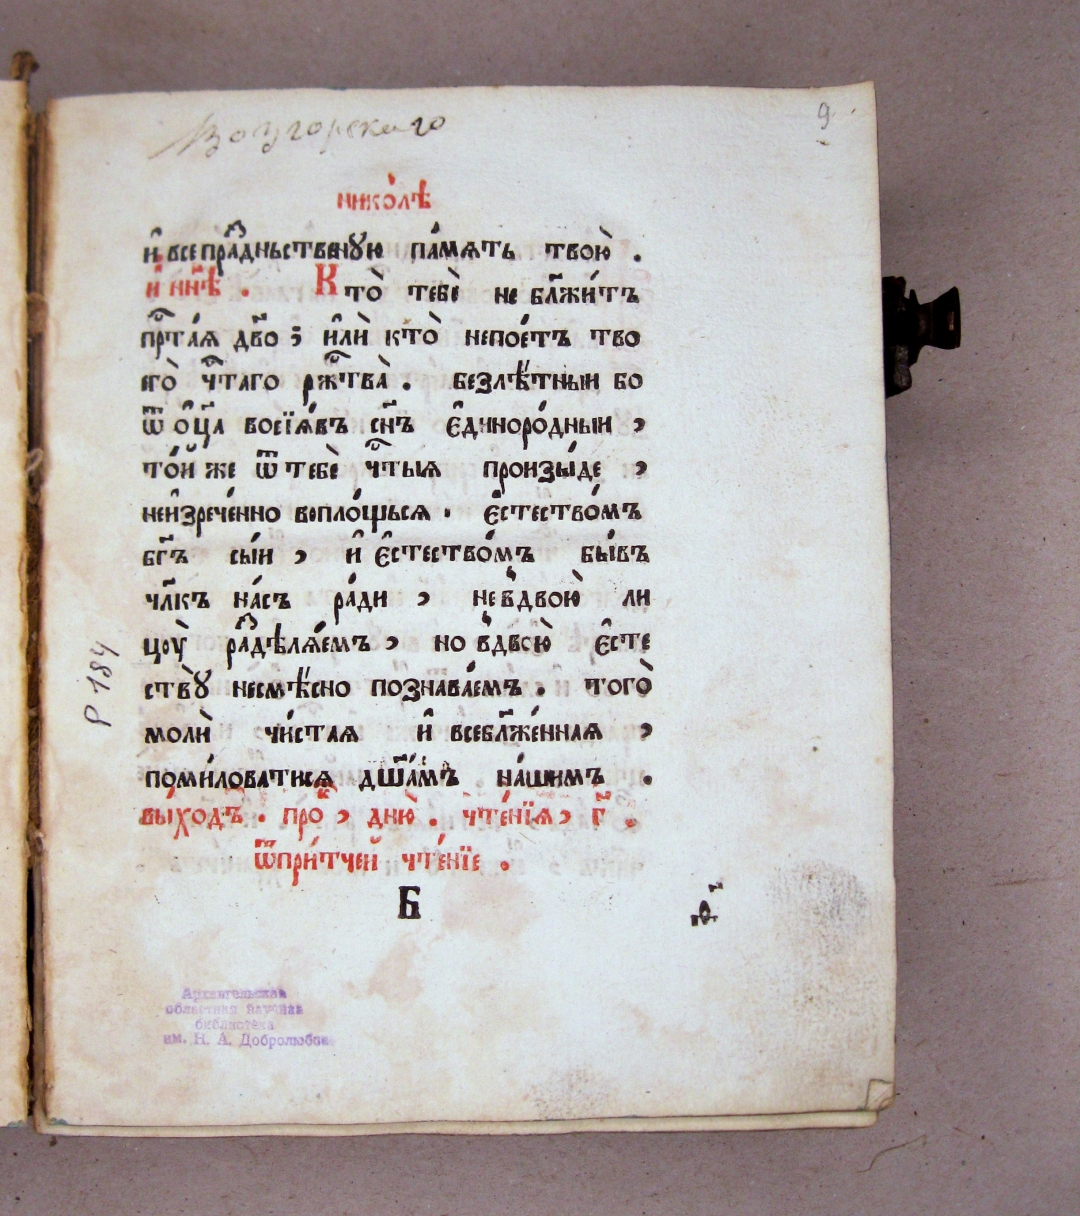 Возгорскаго
9
НИКО́ЛѢ
и҆ всепра́зⷣньственꙋю па́мѧть твою̀ .
и҆ нн҃ѣ . Кто̀ тебѐ не бл҃жи́тъ
прⷭ҇та́ѧ дв҃о ; и҆лѝ кто̀ непое́тъ тво
его̀ чⷭ҇таго ржⷭ҇тва̀ . безлѣ́тныи бо
ѿ о҆ц҃а восїѧ́въ сн҃ъ є҆диноро́дныи ,
то́й же ѿ тебѐ чⷭ҇тыѧ произы́де ,
неи҆зрече́нно вопло́щься . є҆стество́мъ
бг҃ъ сы́и , и҆ є҆стество́мъ бы́въ
чл҃къ на́съ ра́ди , не в̾двою̀ ли
цоу̀ раⷥдѣлѧ́емъ , но в̾двою̀ є҆сте
ствꙋ̀ несмѣ́сно познава́емъ . того̀
молѝ чи́стаѧ и҆ всебл҃же́ннаѧ ,
поми́ловатисѧ дш҃а́мъ на́шимъ .
вы́ходъ . проⷦ , дню̀ . чте́нїѧ , г҃ .
ѿпри́тчей чте́нїе .
Б
Р 184
Архангельская
областная научная
библиотека
им. Н. А. Добролюбова